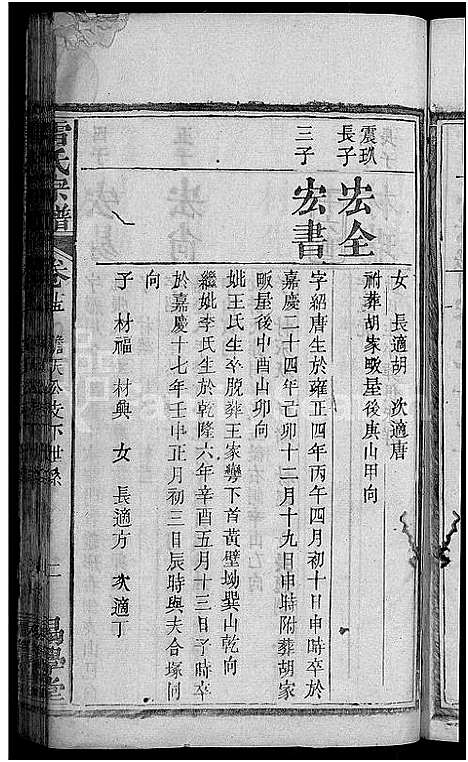 震玖
長子
宏全
三子
宏書
女　長適胡　次適唐
附葬胡家畈屋後庚山甲向
字紹唐生於雍正四年丙午四月初十日申時卒於
嘉慶二十四年己卯十二月十九日申時附葬胡家
畈屋後申酉山卯向
姚王氏生卒脫葬王家灣下首黃壁坳巽山乾向
繼姚李氏生於乾隆六年辛酉五月十三日子時卒
於嘉慶十七年壬申正月初三日辰時與夫合塚同
向
子　材福　材興　女　長適方　次適丁
氏宗譜
卷